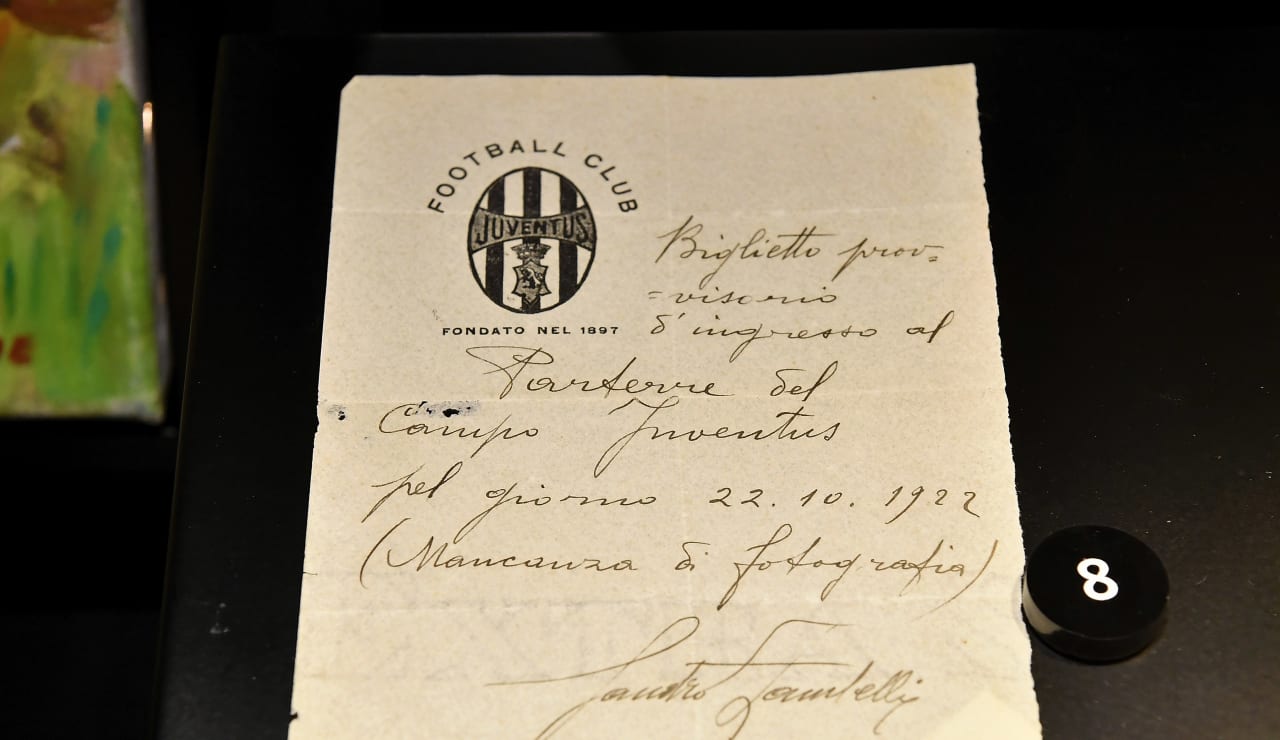 FOOTBALL CLUB
JUVENTUS
FONDATO NEL 1897
Biglietto prov=
=visorio
d'ingresso al
Parterre del
Campo Juventus
pel giorno 22.10.1922
(Mancanza di fotografia)
Sandro Zambelli
8